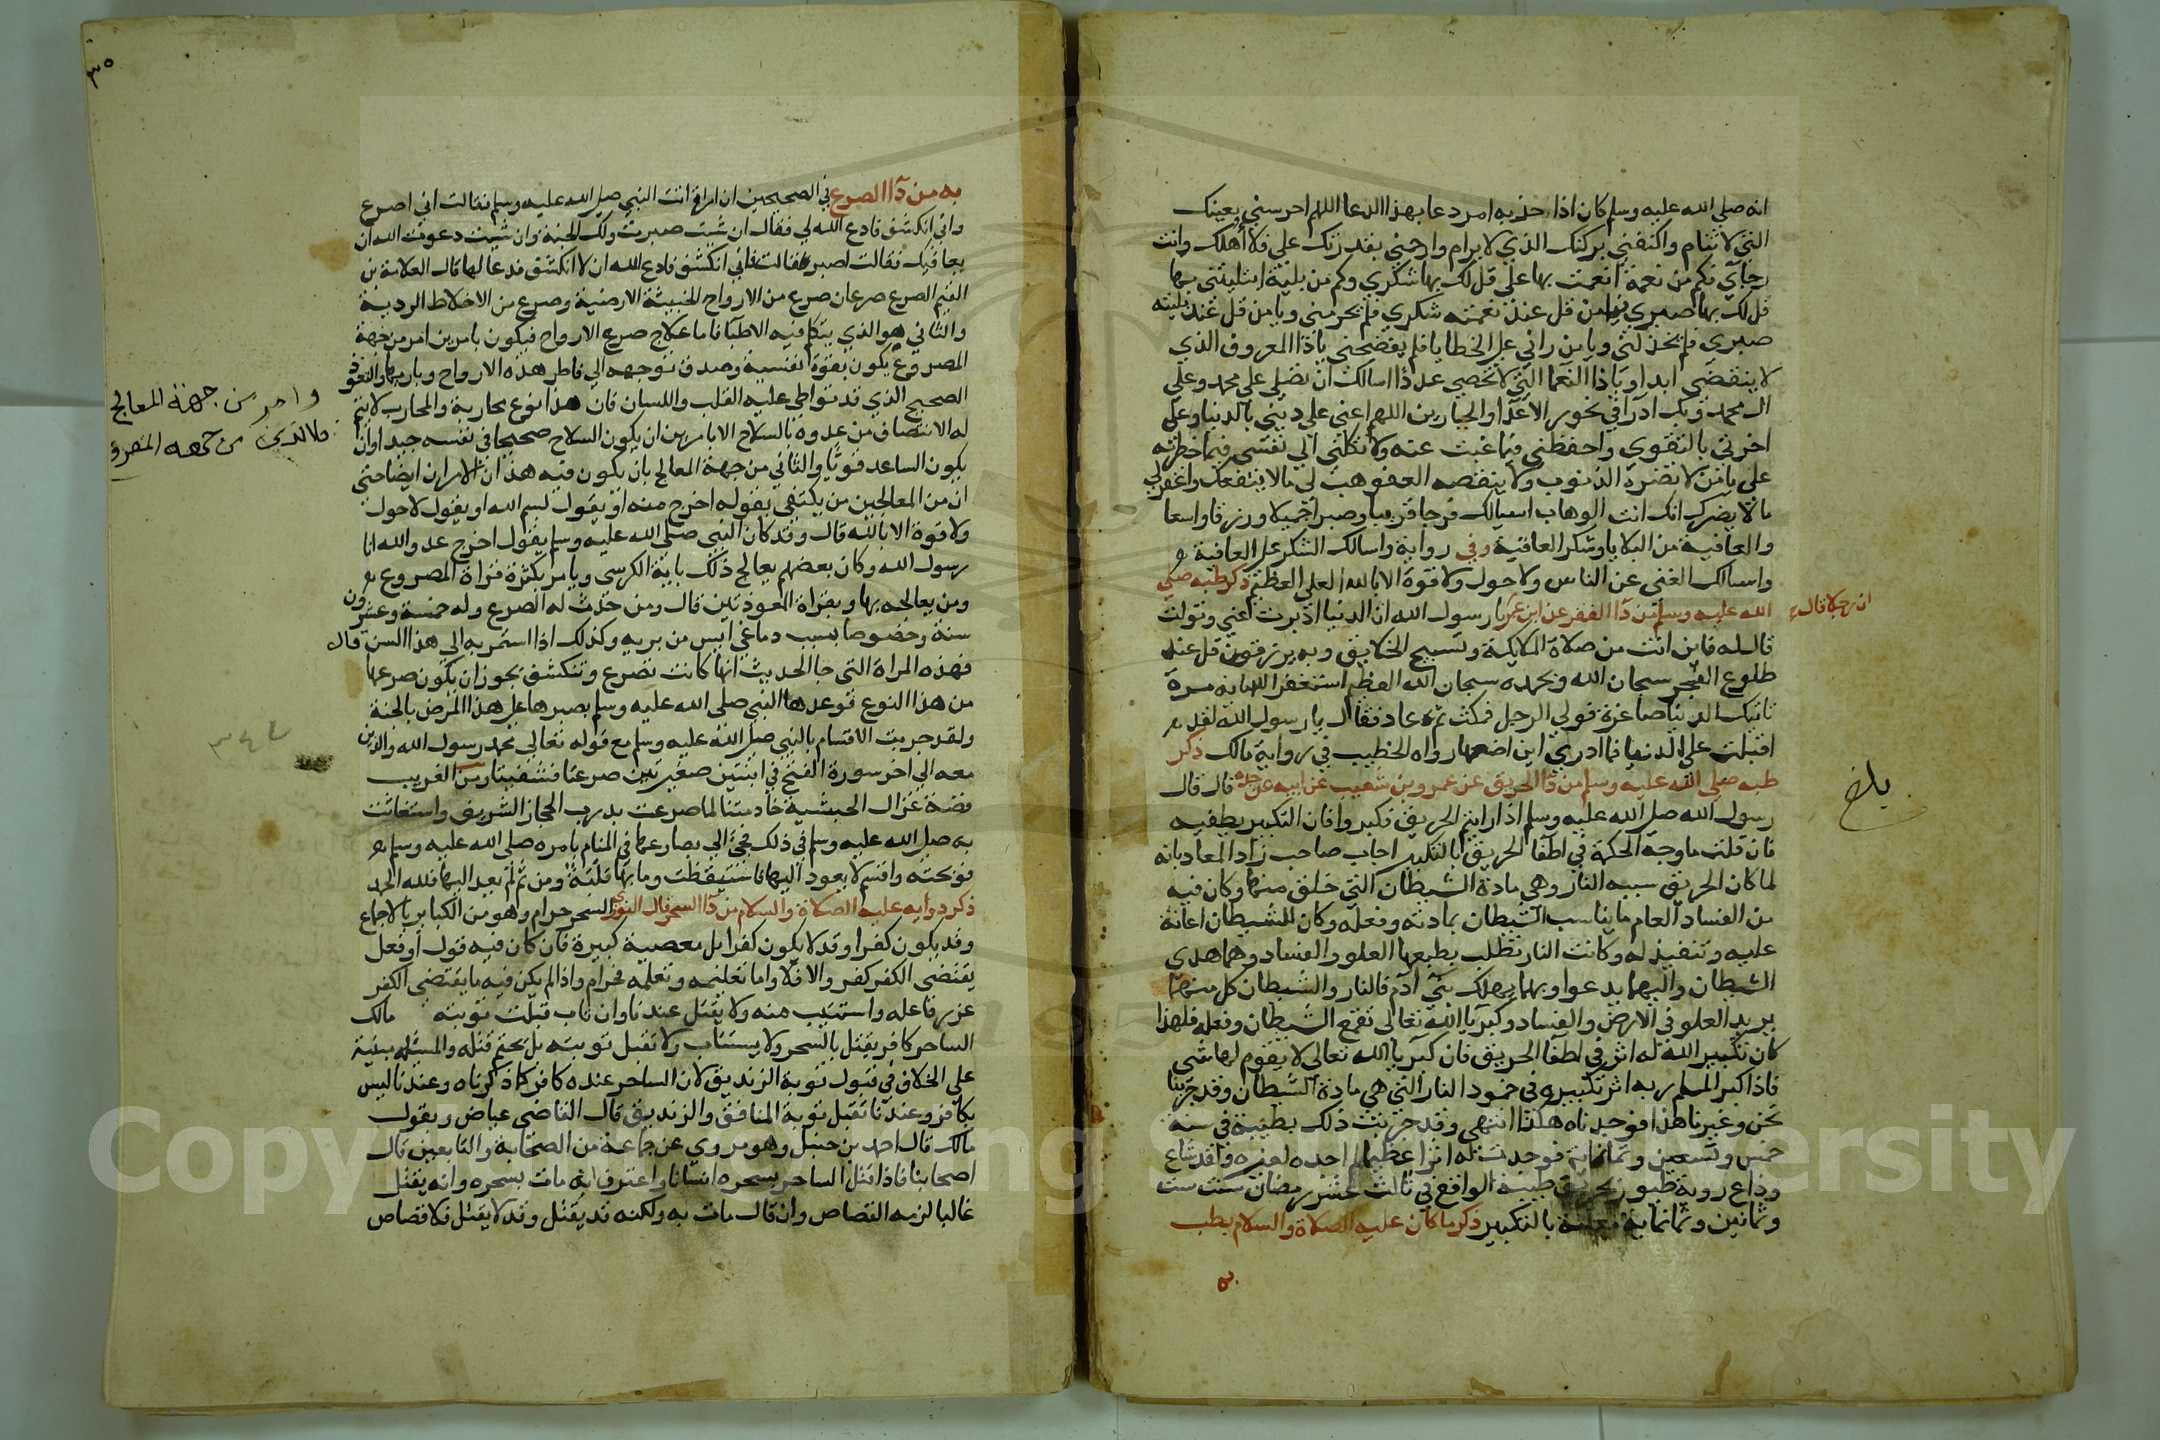 انه صلي الله عليه وسلم كان اذا حزبه امر دعا بهذا الدعا اللهم احرسني بعينك
التي لا تنام واكنفني بركنك الذي لا يرام وارحمني بقدرتك علي فلا أهلك وانت
رجآي فكم من نعمة انعمت بها علي قل لك بها شكري وكم من بلية ابتليتني بها
قل لك بها صبري فيامن قل عند نعمته شكري فلم يحرمني ويا من قل عند بليته
صبري فلم يخذلني ويا من راني علي الخطايا فلم يفضحني ياذا المعروف الذي
لا ينقضي ابدا وياذا النعما التي لا تحصي عددا اسالك ان تصلي علي محمد وعلي
ال محمد وبك ادرا في نحور الاعدا والجبارين اللهم اعني علي ديني بالدنيا وعلي
اخرتي بالتقوي واحفظني فيما غبت عنه ولا تكلني الي نفسي فيما حظرته
علي يا من لا تضره الذنوب ولا ينقصه العفو هب لي مالا ينفعك واغفر لي
ما لا يضرك انك انت الوهاب اسيالك فرجا قريبا وصبرا جميلا ورزقا واسعا
والعافية من البلايا وشكر العافية وفي رواية واسالك الشكر علي العافية
واسالك الغني عن الناس ولا حول ولا قوة الا بالله العلي العظيم ذكر طبه صلي
الله عليه وسلم من دآ الفقر عن ابن عمر يا رسول الله ان الدنيا ادبرت عني وتولت
ان رجلا قال
قال له فاين انت من صلاة الملايكة وتسبيح الخلايق وبه يرزقون قل عند
طلوع الفجر سبحان الله وبحمده سبحان الله العظيم استغفر الله ماية مرة
تاتيك الدنيا صاغرة فولي الرجل فمكث ثم عاد فقال يا رسول الله لقد
اقبلت علي الدنيا فما ادري اين اضعها رواه الخطيب في رواية مالك ذكر
طبه صلي الله عليه وسلم من دآ الحريق عن عمرو بن شعيب عن ابيه عن جده قال قال
بلغ
رسول الله صلي الله عليه وسلم اذا رايتم الحريق فكبروا فان التكبير يطفيه
فان قلت ما وجه الحكمة في اطفا الحريق بالتكبير اجاب صاحب زاد المعاد بانه
لما كان الحريق سببه النار وهي مادة الشيطان التي خلق منها وكان فيه
من الفساد العام ما يناسب الشيطان بمادته وفعله وكان للشيطان اعانة
عليه وتنفيذ له وكانت النار تطلب بطبعها العلو والفساد وهما هدي
الشيطان واليهما يدعوا وبهما يهلك بني آدم فالنار والشيطان كل منهما
يريد العلو في الارض والفساد وكبريا الله تعالي تقمع الشيطان وفعله فلهذا
كان تكبير الله له اثر في اطفا الحريق فان كبريا الله تعالي لا يقوم لها شي
فاذا كبر المسلم ربه اثر تكبيره في خمود النار التي هي مادة الشيطان وقد جربنا
نحن وغيرنا هذا فوجدناه هكذا انتهي وقد جربت ذلك بطيبة في سنة
خمس وتسعين وثمانماية فوجدت له اثرا عظيما لم اجده لغيره ولقد شاع
وذاع روية طيور بحريق طيبة الواقع في ثالث عشر رمضان سنة ست
وثمانين وثمانماية معلنة بالتكبير ذكر ما كان عليه الصلاة والسلام يطب
٣٠
به من دآ الصرع في الصحيحين ان امراة اتت النبي صلي الله عليه وسلم فقالت اني اصرع
واني انكشف فادع الله لي فقال ان شيت صبرت ولك الجنة وان شيت دعوت الله ان
يعافيك فقالت اصبر فقالت فاني انكشف فادع الله ان لا انكشف فدعا لها قال العلامة بن
القيم الصرع صرعان صرع من الارواح الخبيثة الارضية وصرع من الاخلاط الردية
والثاني هو الذي يتكلم فيه الاطبا فاما علاج صرع الارواح فيكون بامرين امر من جهة
المصروع يكون بقوة نفسية وصدق توجهه الي فاطر هذه الارواح وباريها والتعوذ
الصحيح الذي قد تواطي عليه القلب واللسان فان هذا نوع محاربة والمحارب لا يتم
وامر من جهة المعالج
فالذي من جهة المصروع
له الانتصاف من عدوه بالسلاح الا بامرين ان يكون السلاح صحيحا في نفسه جيدا وان
يكون الساعد قويا والثاني من جهة المعالج بان يكون فيه هذان الامران ايضا حتي
ان من المعالجين من يكتفي بقوله اخرج منه او يقول بسم الله او يقول لا حول
ولا قوة الا بالله قال وقد كان النبي صلي الله عليه وسلم يقول اخرج عدو الله انا
رسول الله وكان بعضهم يعالج ذلك باية الكرسي ويامر بكثرة قراة المصروع
ومن يعالجه بها وبقراة المعوذتين قال ومن حدث له الصرع وله خمسة وعشرون
سنة وخصوصا بسبب دماغي ايس من بريه وكذلك اذا استمر به الي هذا السن قال
فهذه المراة التي جا الحديث انها كانت تصرع وتنكشف يجوز ان يكون صرعها
من هذا النوع فوعدها النبي صلي الله عليه وسلم بصبرها علي هذا المرض بالجنة
ولقد جربت الاقسام بالنبي صلي الله عليه وسلم مع قوله تعالي محمد رسول الله والذين
معه الي اخر سورة الفتح في ابنتين صغيرتين صرعتا فشفيتا ومن الغريب
قصة غزال الحبشية خادمتنا لما صرعت بدرب الحجاز الشريف واستغاثت
به صلي الله عليه وسلم في ذلك فجئ الي بصارعها في المنام بامره صلي الله عليه وسلم
فوبخته واقسم لا يعود اليها فاستيقظت وما بها قلبة ومن ثم لم يعد اليها فلله الحمد
ذكر دوايه عليه الصلاة والسلام من دآ السحر قال النووي السحر حرام وهو من الكباير بالاجماع
وقد يكون كفرا وقد لا يكون كفرا بل معصية كبيرة فان كان فيه قول او فعل
يقتضي الكفر كفر والا فلا واما تعليمه وتعلمه فحرام واذا لم يكن فيه ما يقتضي الكفر
عزر فاعله واستتيب منه ولا يقتل عندنا وان تاب قبلت توبته مالك
الساحر كافر يقتل بالسحر ولا يستتاب ولا تقبل توبته بل يحتم قتله والمسئلة مبنية
علي الخلاف في قبول توبة الزنديق لان الساحر عنده كافر كما ذكرناه وعندنا ليس
بكافر وعندنا تقبل توبة المنافق والزنديق قال القاضي عياض وبقول
مالك قال احمد بن حنبل وهو مروي عن جماعة من الصحابة والتابعين قال
اصحابنا فاذا قتل الساحر بسحره انسانا واعترف انه مات بسحره وانه يقتل
غالبا لزمه القصاص وان قال مات به ولكنه قد يقتل وقد لا يقتل فلا قصاص